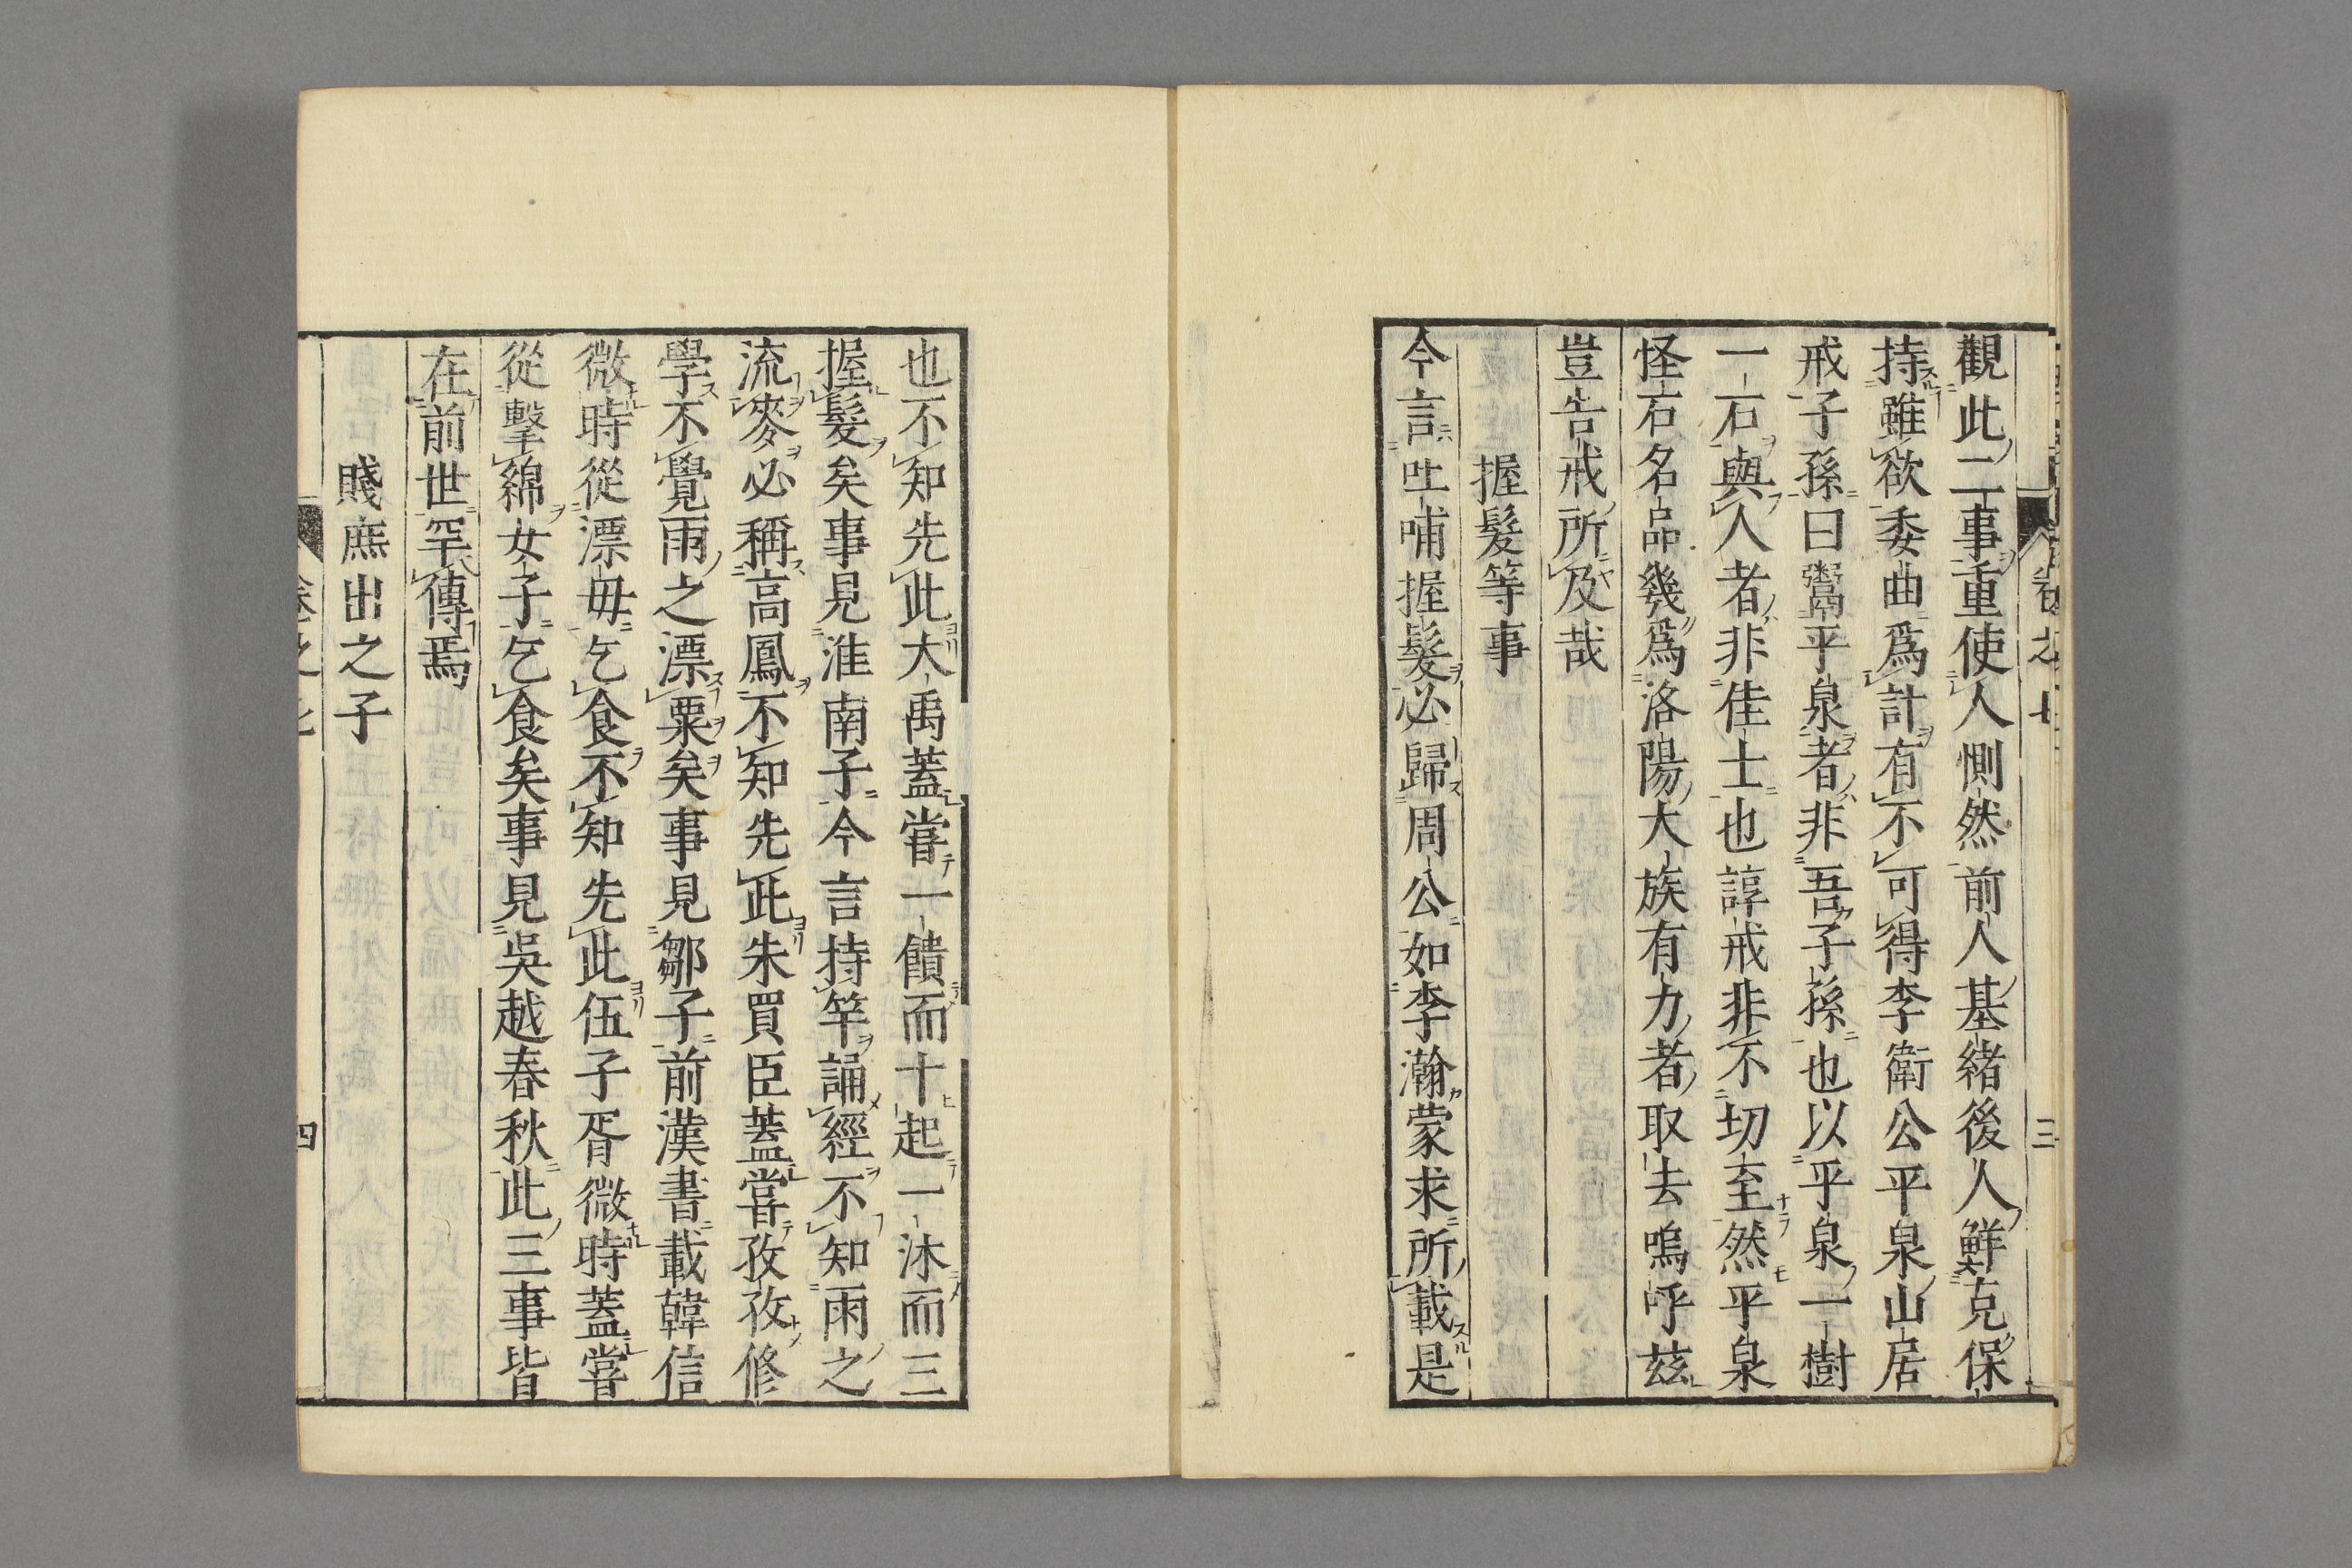 觀此二事重使人惻然前人基緒後人鮮克保
持雖欲委曲爲計有不可得李衛公平泉山居
戒子孫曰鬻平泉者非吾子孫也以平泉一樹
一石與人者非佳士也諄戒非不切至然平泉
怪石名品幾爲洛陽大族有力者取去嗚呼茲
豈告戒所及哉
握髮等事
今言吐哺握髮必歸周公如李瀚蒙求所載是
也不知先此大禹蓋嘗一饋而十起一沐而三
握髮矣事見淮南子今言持竿誦經不知雨之
流麥必稱高鳳不知先此朱買臣蓋嘗孜孜修
學不覺雨之漂粟矣事見鄒子前漢書載韓信
微時從漂母乞食不知先此伍子胥微時蓋嘗
從擊綿女子乞食矣事見吳越春秋此三事皆
在前世罕傳焉
賤庶出之子
四